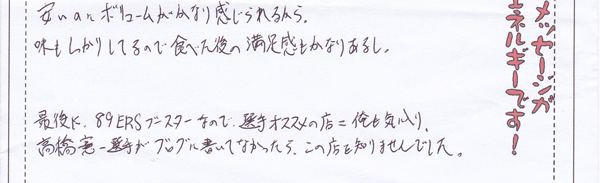 安いのにボリュームがかなり感じられるから。
味もしっかりしてるので食べた後の満足感もかなりあるし。
最後に、89ERSブースターなので、選手オススメの店=俺も気に入り。
高橋憲一選手がブログに書いてなかったら、この店を知りませんでした。
メッセージが
エネルギーです!